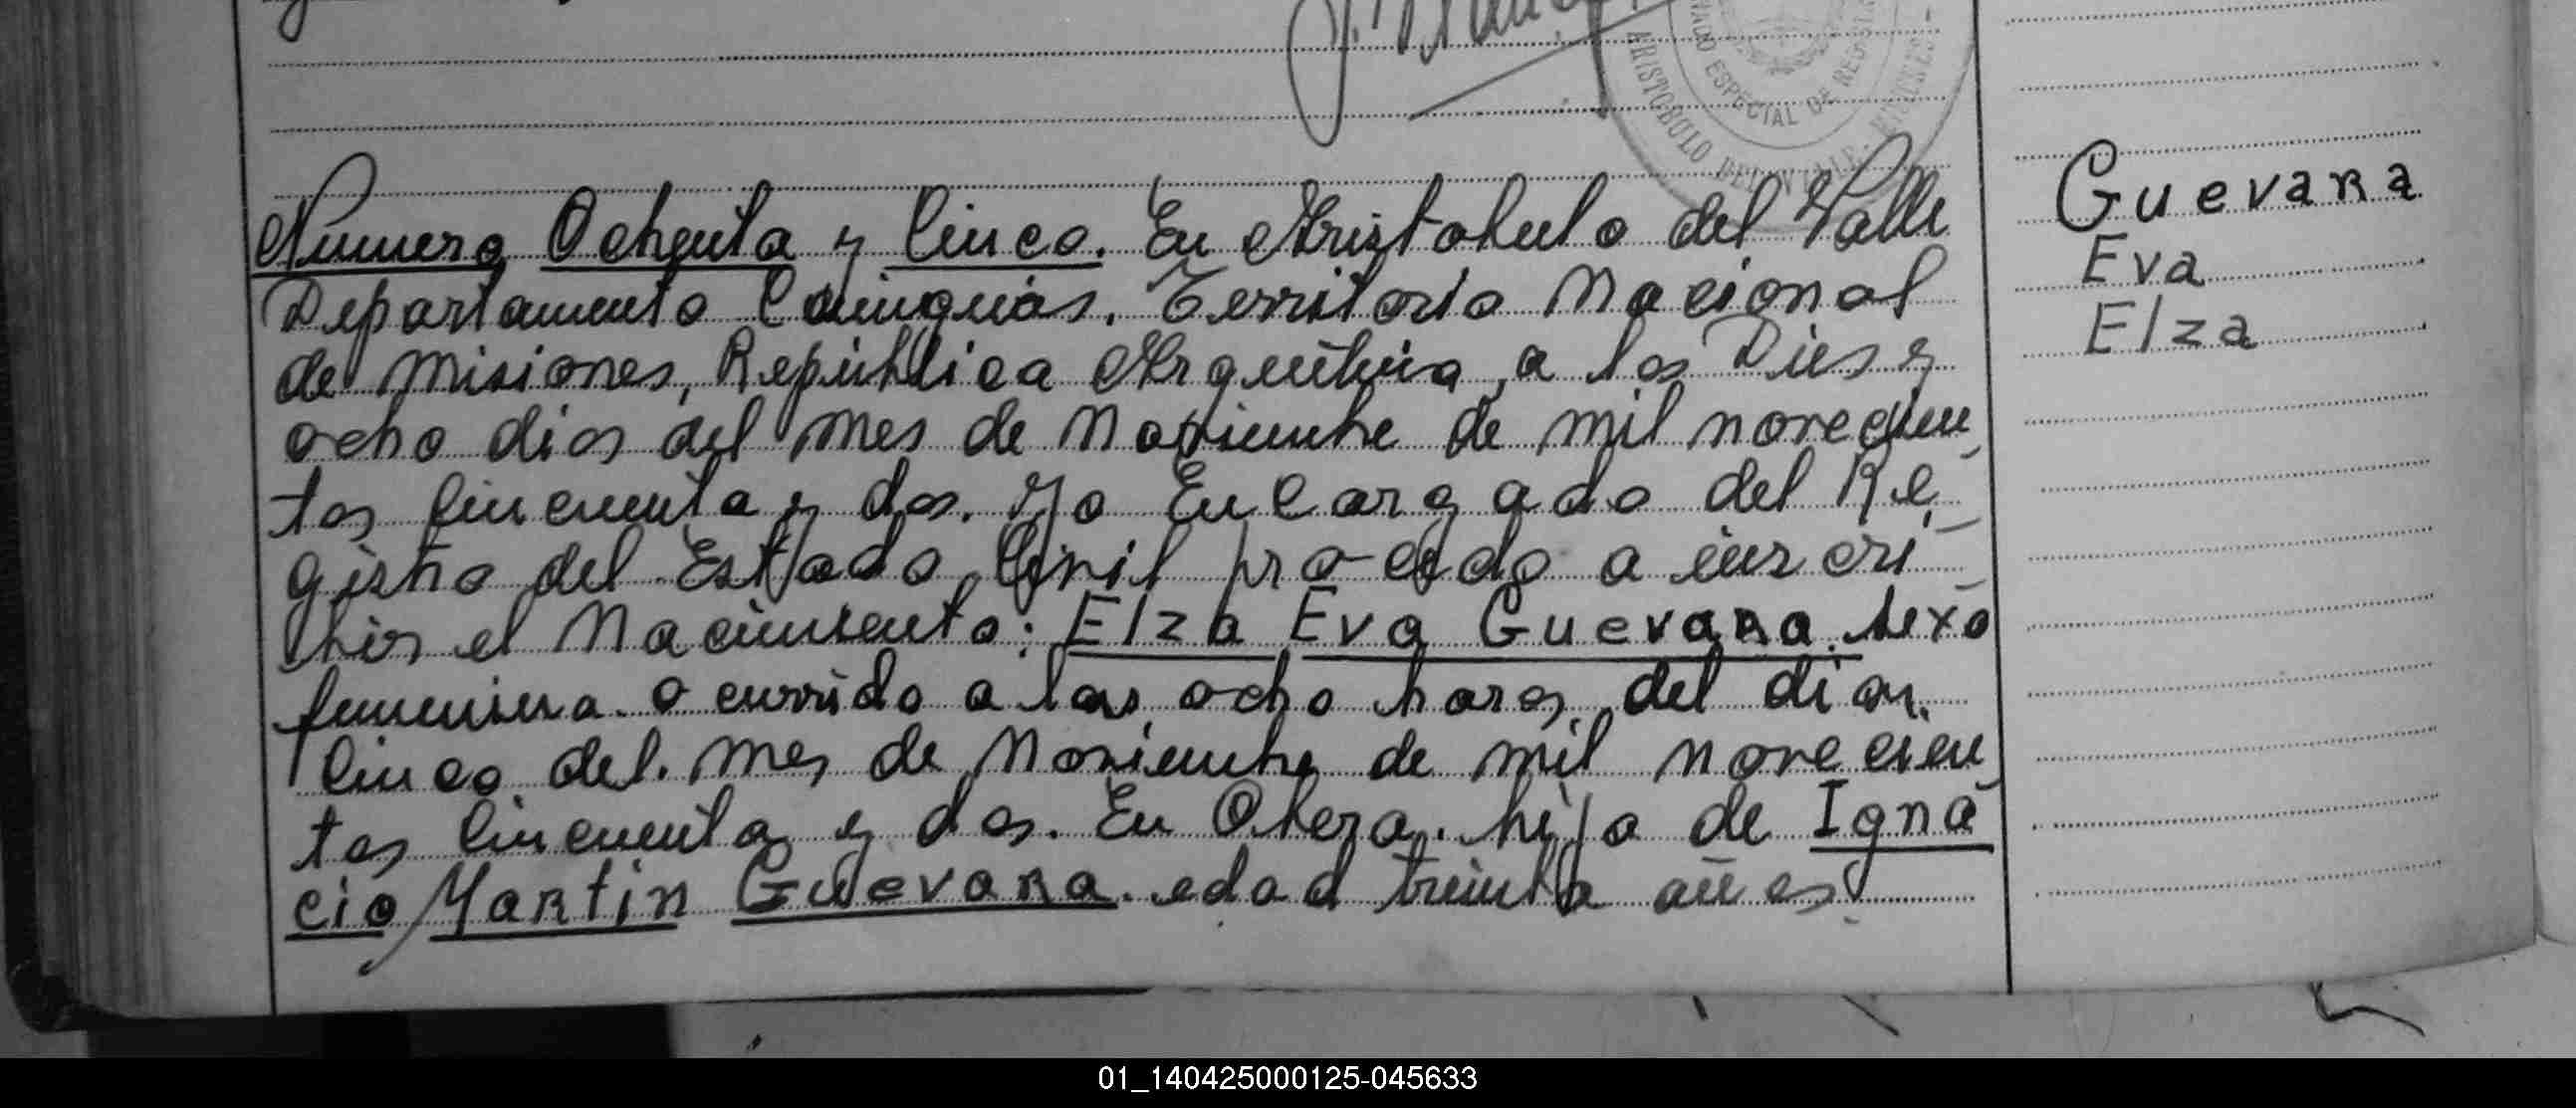 ARISTOBULO DEL VALLE
ESPECIAL DE
Numero Ochenta y Cinco. En Aristobulo del Valle
Departamento Cainguás. Territorio Nacional
de Misiones, República Argentina, a los Dies y
ocho dias del mes de Noviembre de mil novecien
tos Cincuenta y dos. Yo Encargado del Re-
gistro del Estado Civil procedo a inscri-
bir el Nacimiento: Elza Eva Guevara. sexo
femenina. ocurrido a las ocho horas. del dia.
Cinco del. mes de Noviembre de mil novecien
tos Cincuenta y dos. En Obera. hija de Igna
cio Martin Guevara. edad treinta años
Guevara
Eva
Elza
01_140425000125-045633